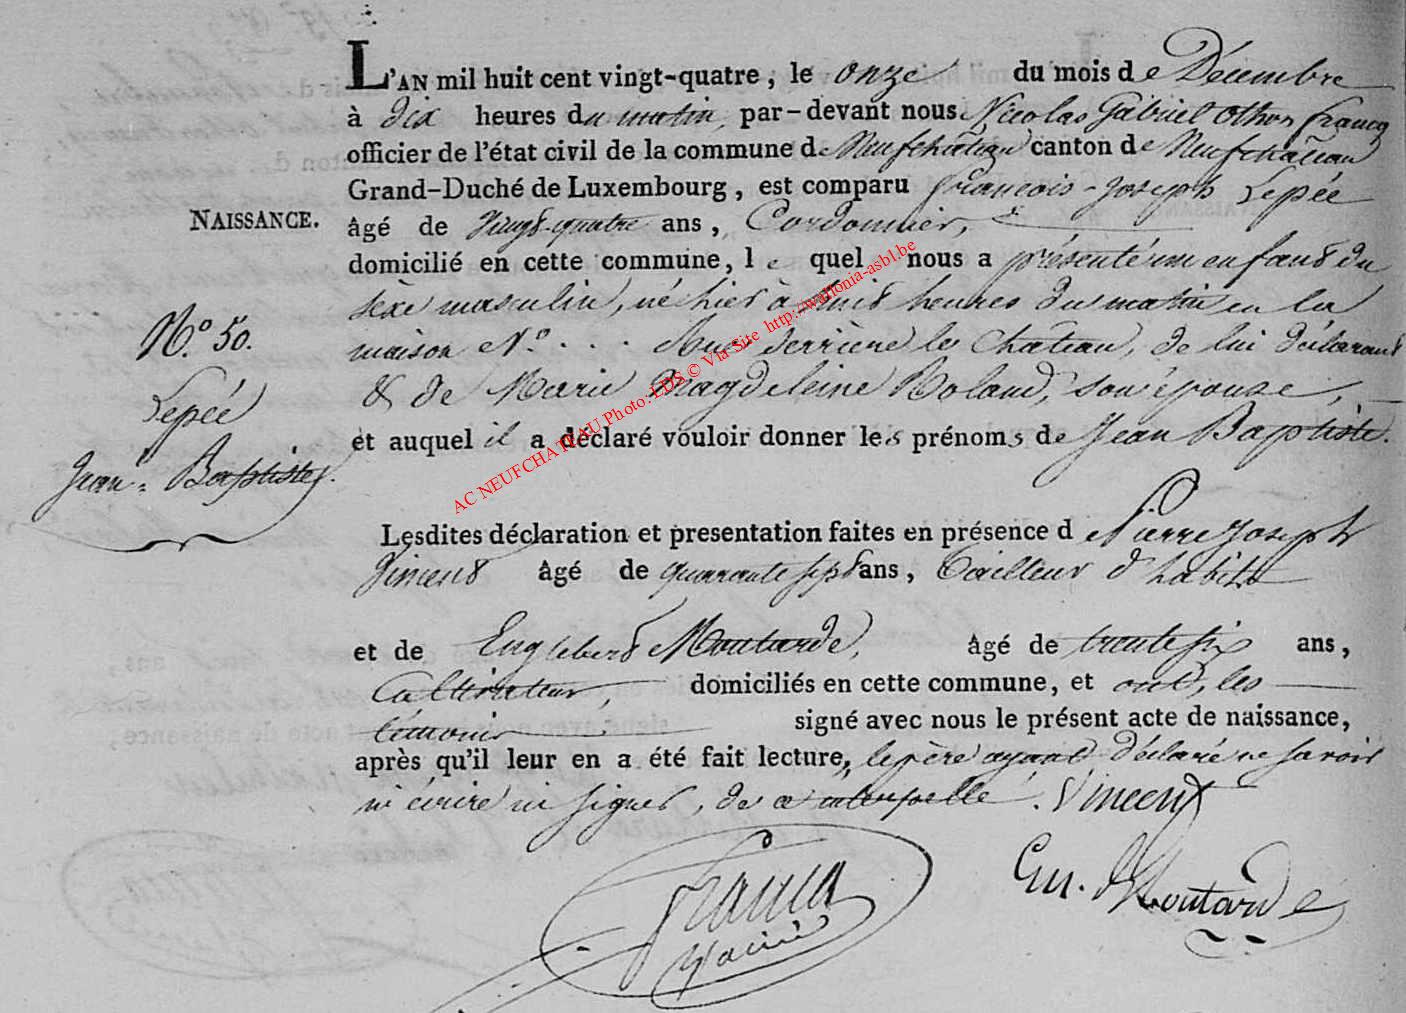 L'AN mil huit cent vingt-quatre, le onze du mois de Décembre
à dix heures du matin, par-devant nous Nicolas Gabriel Othon Francq
officier de l'état civil de la commune de Neufchâteau canton de Neufchâteau
Grand-Duché de Luxembourg, est comparu François-Joseph Lepée
NAISSANCE.
âgé de vingt-quatre ans, Cordonnier,
domicilié en cette commune, le quel nous a présenté un enfant du
sèxe masculin, né hier à huit heures du matin en la
N.º 50.
maison Nº. . . . Rue derrière le Château, de lui déclarant
Lepée
& de Marie Magdeleine Roland, son épouse,
et auquel il a déclaré vouloir donner les prénoms de Jean Baptiste.
Jean-Baptiste.
AC NEUFCHATEAU Photo: LDS © Via Site http://wallonia-asbl.be
Lesdites déclaration et presentation faites en présence de Pierre Joseph
Vincent âgé de quarante sept ans, Tailleur d'habits
et de Englebert Moutarde, âgé de trente six ans,
Cultivateur, domiciliés en cette commune, et ont, les
témoins signé avec nous le présent acte de naissance,
après qu'il leur en a été fait lecture, le père ayant déclaré ne savoir
ni écrire ni signer, de ce interpellé. Vincent
En. Moutarde
Francq